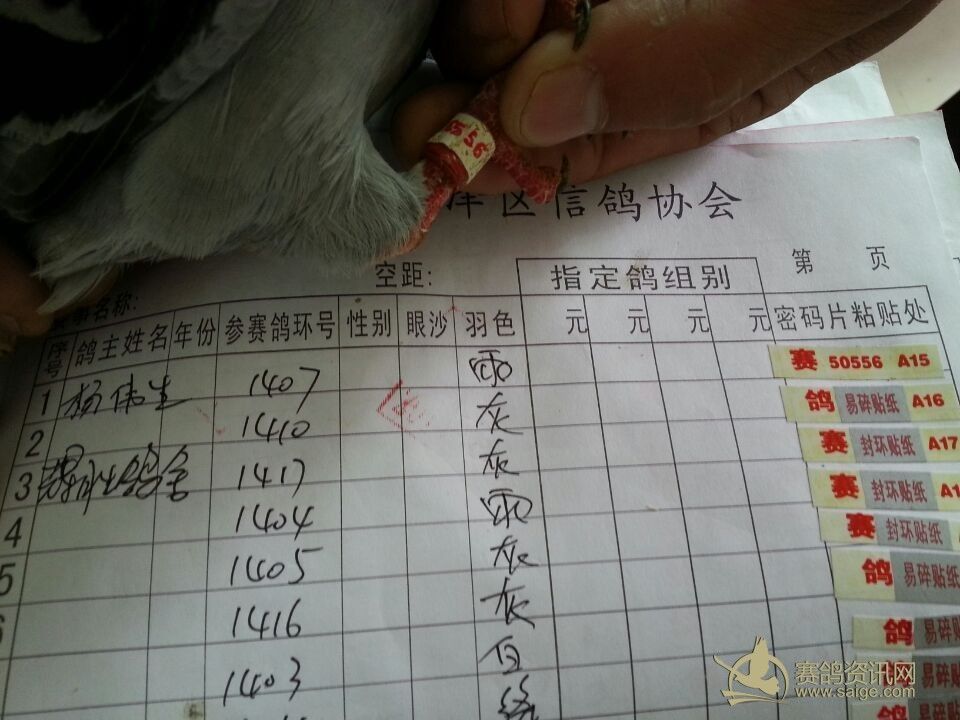 556
区信鸽协会
空距:
指定鸽组别
第 页
事名称:
序号 鸽主姓名 年份 参赛鸽环号 性别 眼沙 羽色 元 元 元 元 密码片粘贴处
1 杨伟生 1407 雨 赛 50556 A15
2 1410 灰 鸽 易碎贴纸 A16
3 鸽舍 1417 灰 赛 封环贴纸 A17
4 1404 雨 赛 封环贴纸 A1
5 1405 灰 赛 封环贴纸
1416 灰 鸽 易碎贴纸
1403 白 鸽 易碎贴
赛鸽资讯网
www.saige.com